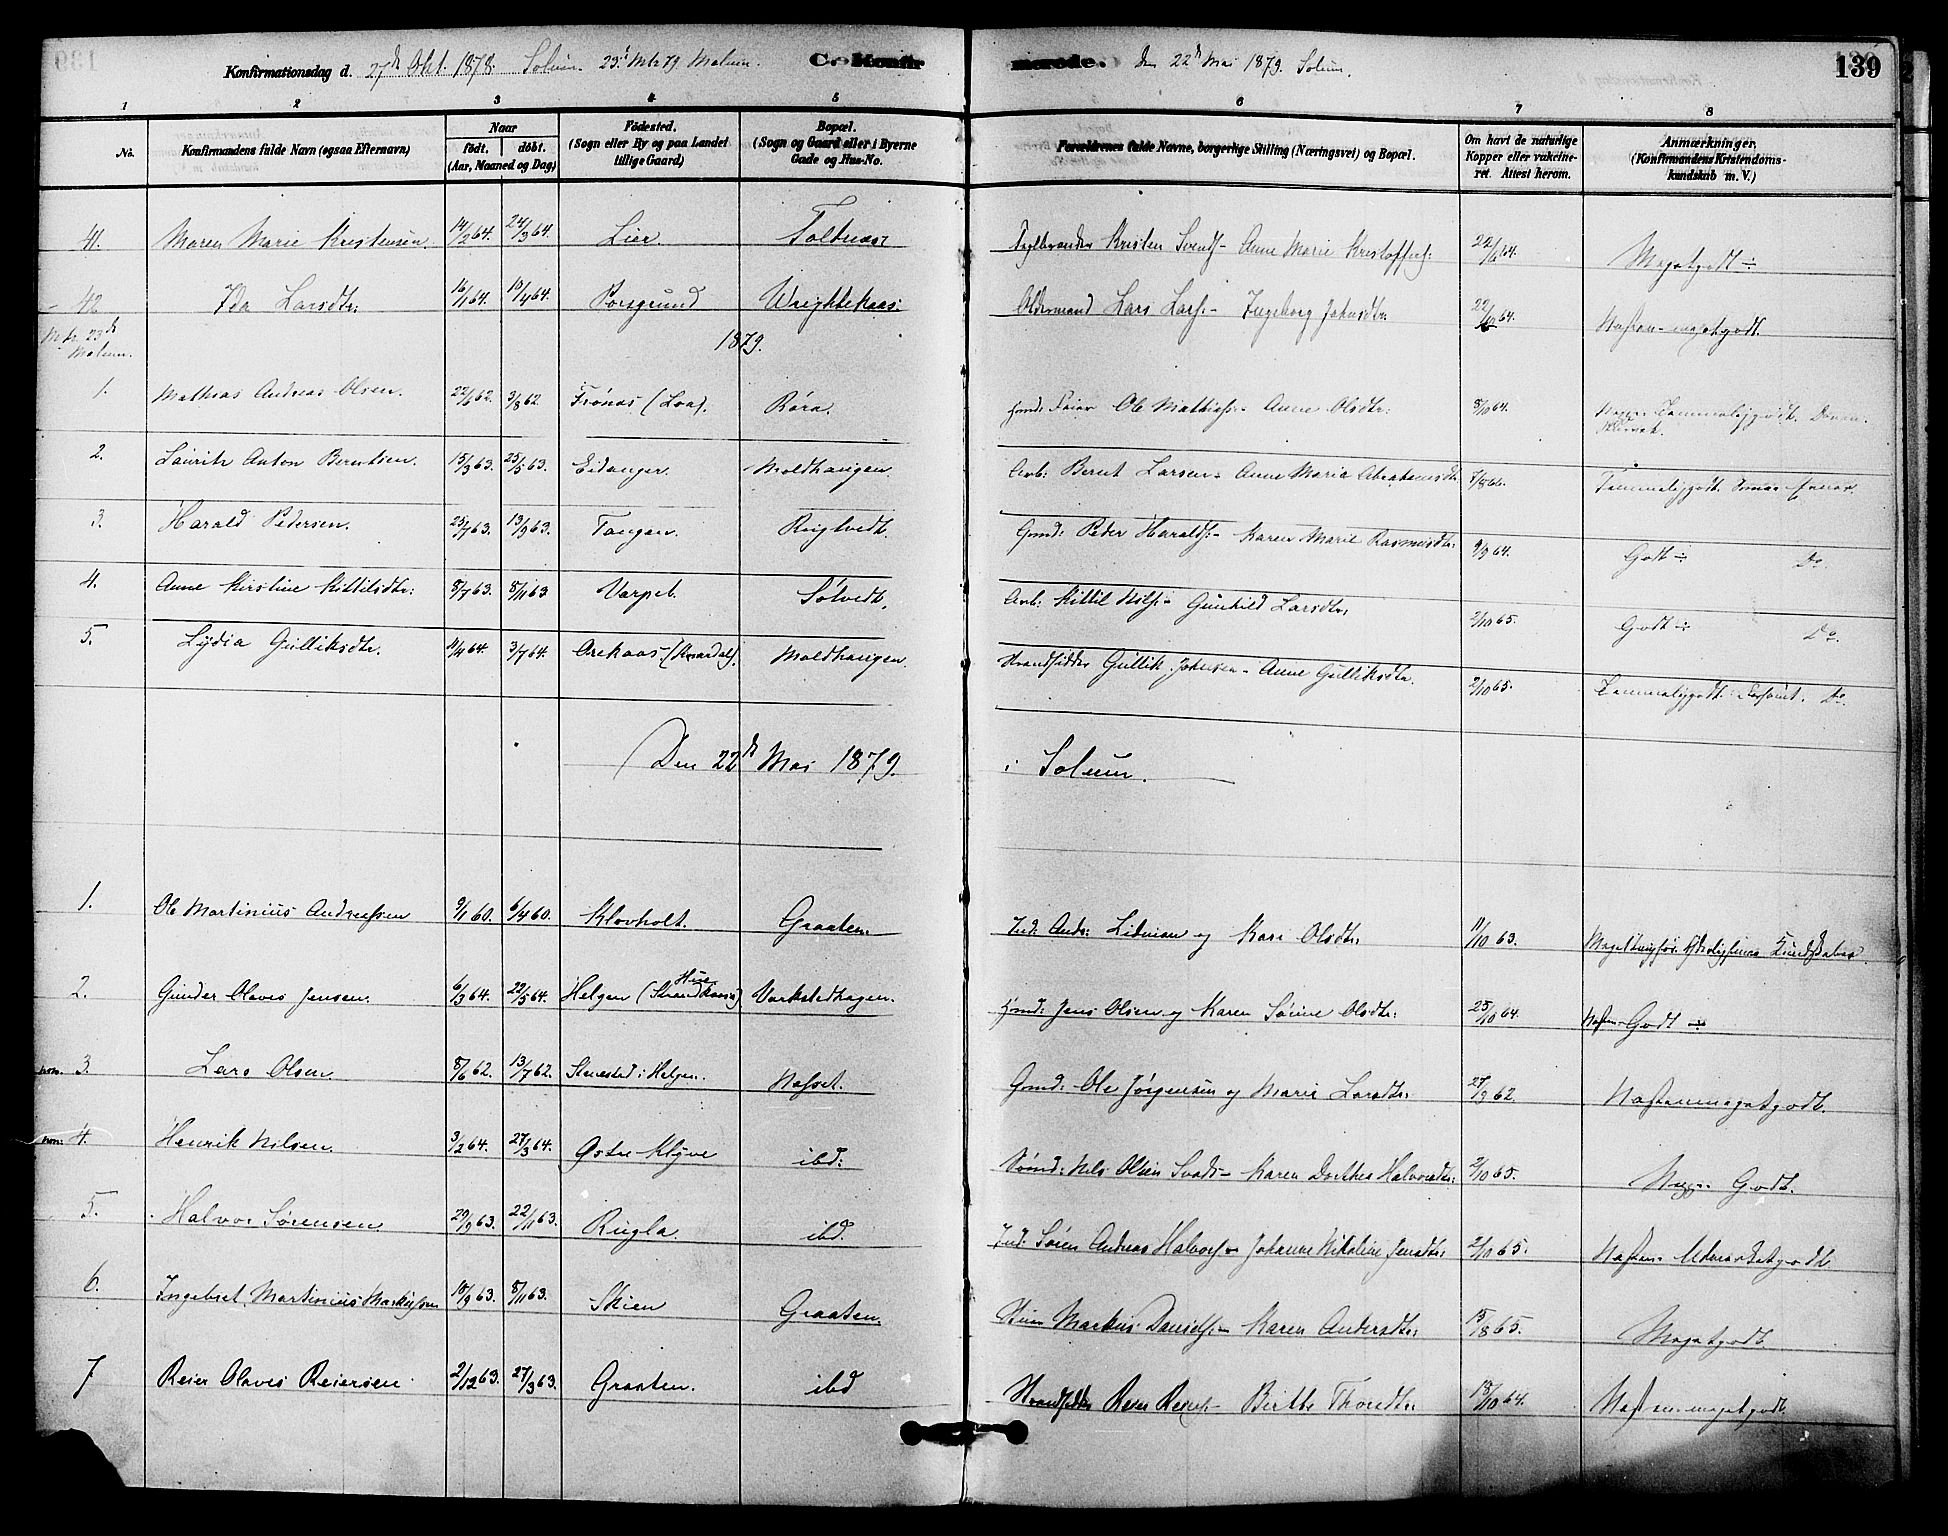 139
Konfirmationsdag d. 27de Okt. 1878 Solum. 23d Mts 79 Melum. Confirmerede. den 22de Mai 1879. Solum.
1 2 3 4 5 6 7 8
No. Konfirmandens fulde Navn (ogsaa Efternavn) Naar födt. döbt. (Aar, Maaned og Dag) Födested. (Sogn eller By og paa Landet tillige Gaard) Bopæl. (Sogn og Gaard eller i Byerne Gade og Hus-No. Forældrenes fulde Navne, borgerlige Stilling (Næringsvei) og Bopæl. Om havt de naturlige Kopper eller vakcineret. Attest herom. Anmærkninger, (Konfirmandens Kristendomskundskab m. V.)
41. Maren Marie Kristensen. 14/2 64. 24/3 64. Lier. Toltnæs Teglbrænder Kristen Svends- Anne Marie Kristoffers: 22/6 64. Megetgodt
42. Ida Larsdtr: 16/1 64. 10/4 64. Porsgrund Wrightekaas. Oldermand Lars Lars:- Ingeborg Johnsdtr: 22/10 64. Næsten-megetgodt.
Mts 23de Melum. 1879.
1. Mathias Andreas Olsen. 22/6 62. 3/8 62. Frönes (Loa). Röra. Ole Mathiess:- Anne Olsdtr: 8/10 64. Temmeligodt.
2. Lauritz Anton Berntsen. 15/3 63. 25/5 63. Eidanger. Moldhaugen. Arb: Bernt Larsen- Anne Marie Abrahamsdtr 7/8 66. Temmeligodt.
3. Harald Pedersen. 25/7 63. 13/9 63. Tangen. Rugtvedt. Gmd: Peder Haralds:- Karen Marie Rasmusdtr: 9/9 64. Godt Do
4. Anne Kirstine Kittilsdtr: 8/7 63. 8/11 63 Varpet. Solvedt. Arb: Kittil Nils:- Gunhild Larsdtr: 2/10 65. Godt Do.
5. Lydia Gulliksdtr. 11/4 64. 3/7 64. Arekaas- Moldhaugen. Strandsidder Gullik Johnsen- Anne Gulliksdtr. 2/10 65. Temmeligodt. Do.
Den 22de Mai 1879. i Solum.
1. Ole Martinius Andreassen 9/1 60. 6/4 60. Klovholt. Graaten. Ind: Ands: Lidman og Kari Olsdtr: 11/10 63.
2. Gunder Olaves Jensen. 6/3 64. 22/5 64. Helgen Værkstedhagen. Jens Olsen og Karen Sörine Olsdtr: 25/10 64. Næsten-Godt
3. Lars Olsen. 8/6 62. 13/7 62. Stenstad i Helgen. Næfset. Gmd: Ole Jörgensen og Marie Larsdtr: 27/9 62. Næstenmegetgodt.
4. Henrik Nilsen. 3/2 64. 27/3 64. Østre Klyve ibd: Nils Olsen Svads- Karen Dorthea Halvorsdtr: 2/10 65. Godt.
5. Halvor Sörensen. 29/9 63. 22/11 63. Rugla ibd. Ind: Sören Andreas Halvors- Johanne Nikoline Jensdtr: 2/10 65. Næsten- Udmærketgodt
6. Ingebret Martinius Markussen 18/9 63. 8/11 63. Skien Graaten. Markus Daniels:- Karen Andersdtr: 15/8 65. Megetgodt
7 Reier Olaves Reiersen 2/12 63. 27/3 63. Graaten. ibd Strandsidder Reier Reiers:- Birthe Thorsdtr: 18/10 64. Næsten-megetgodt.